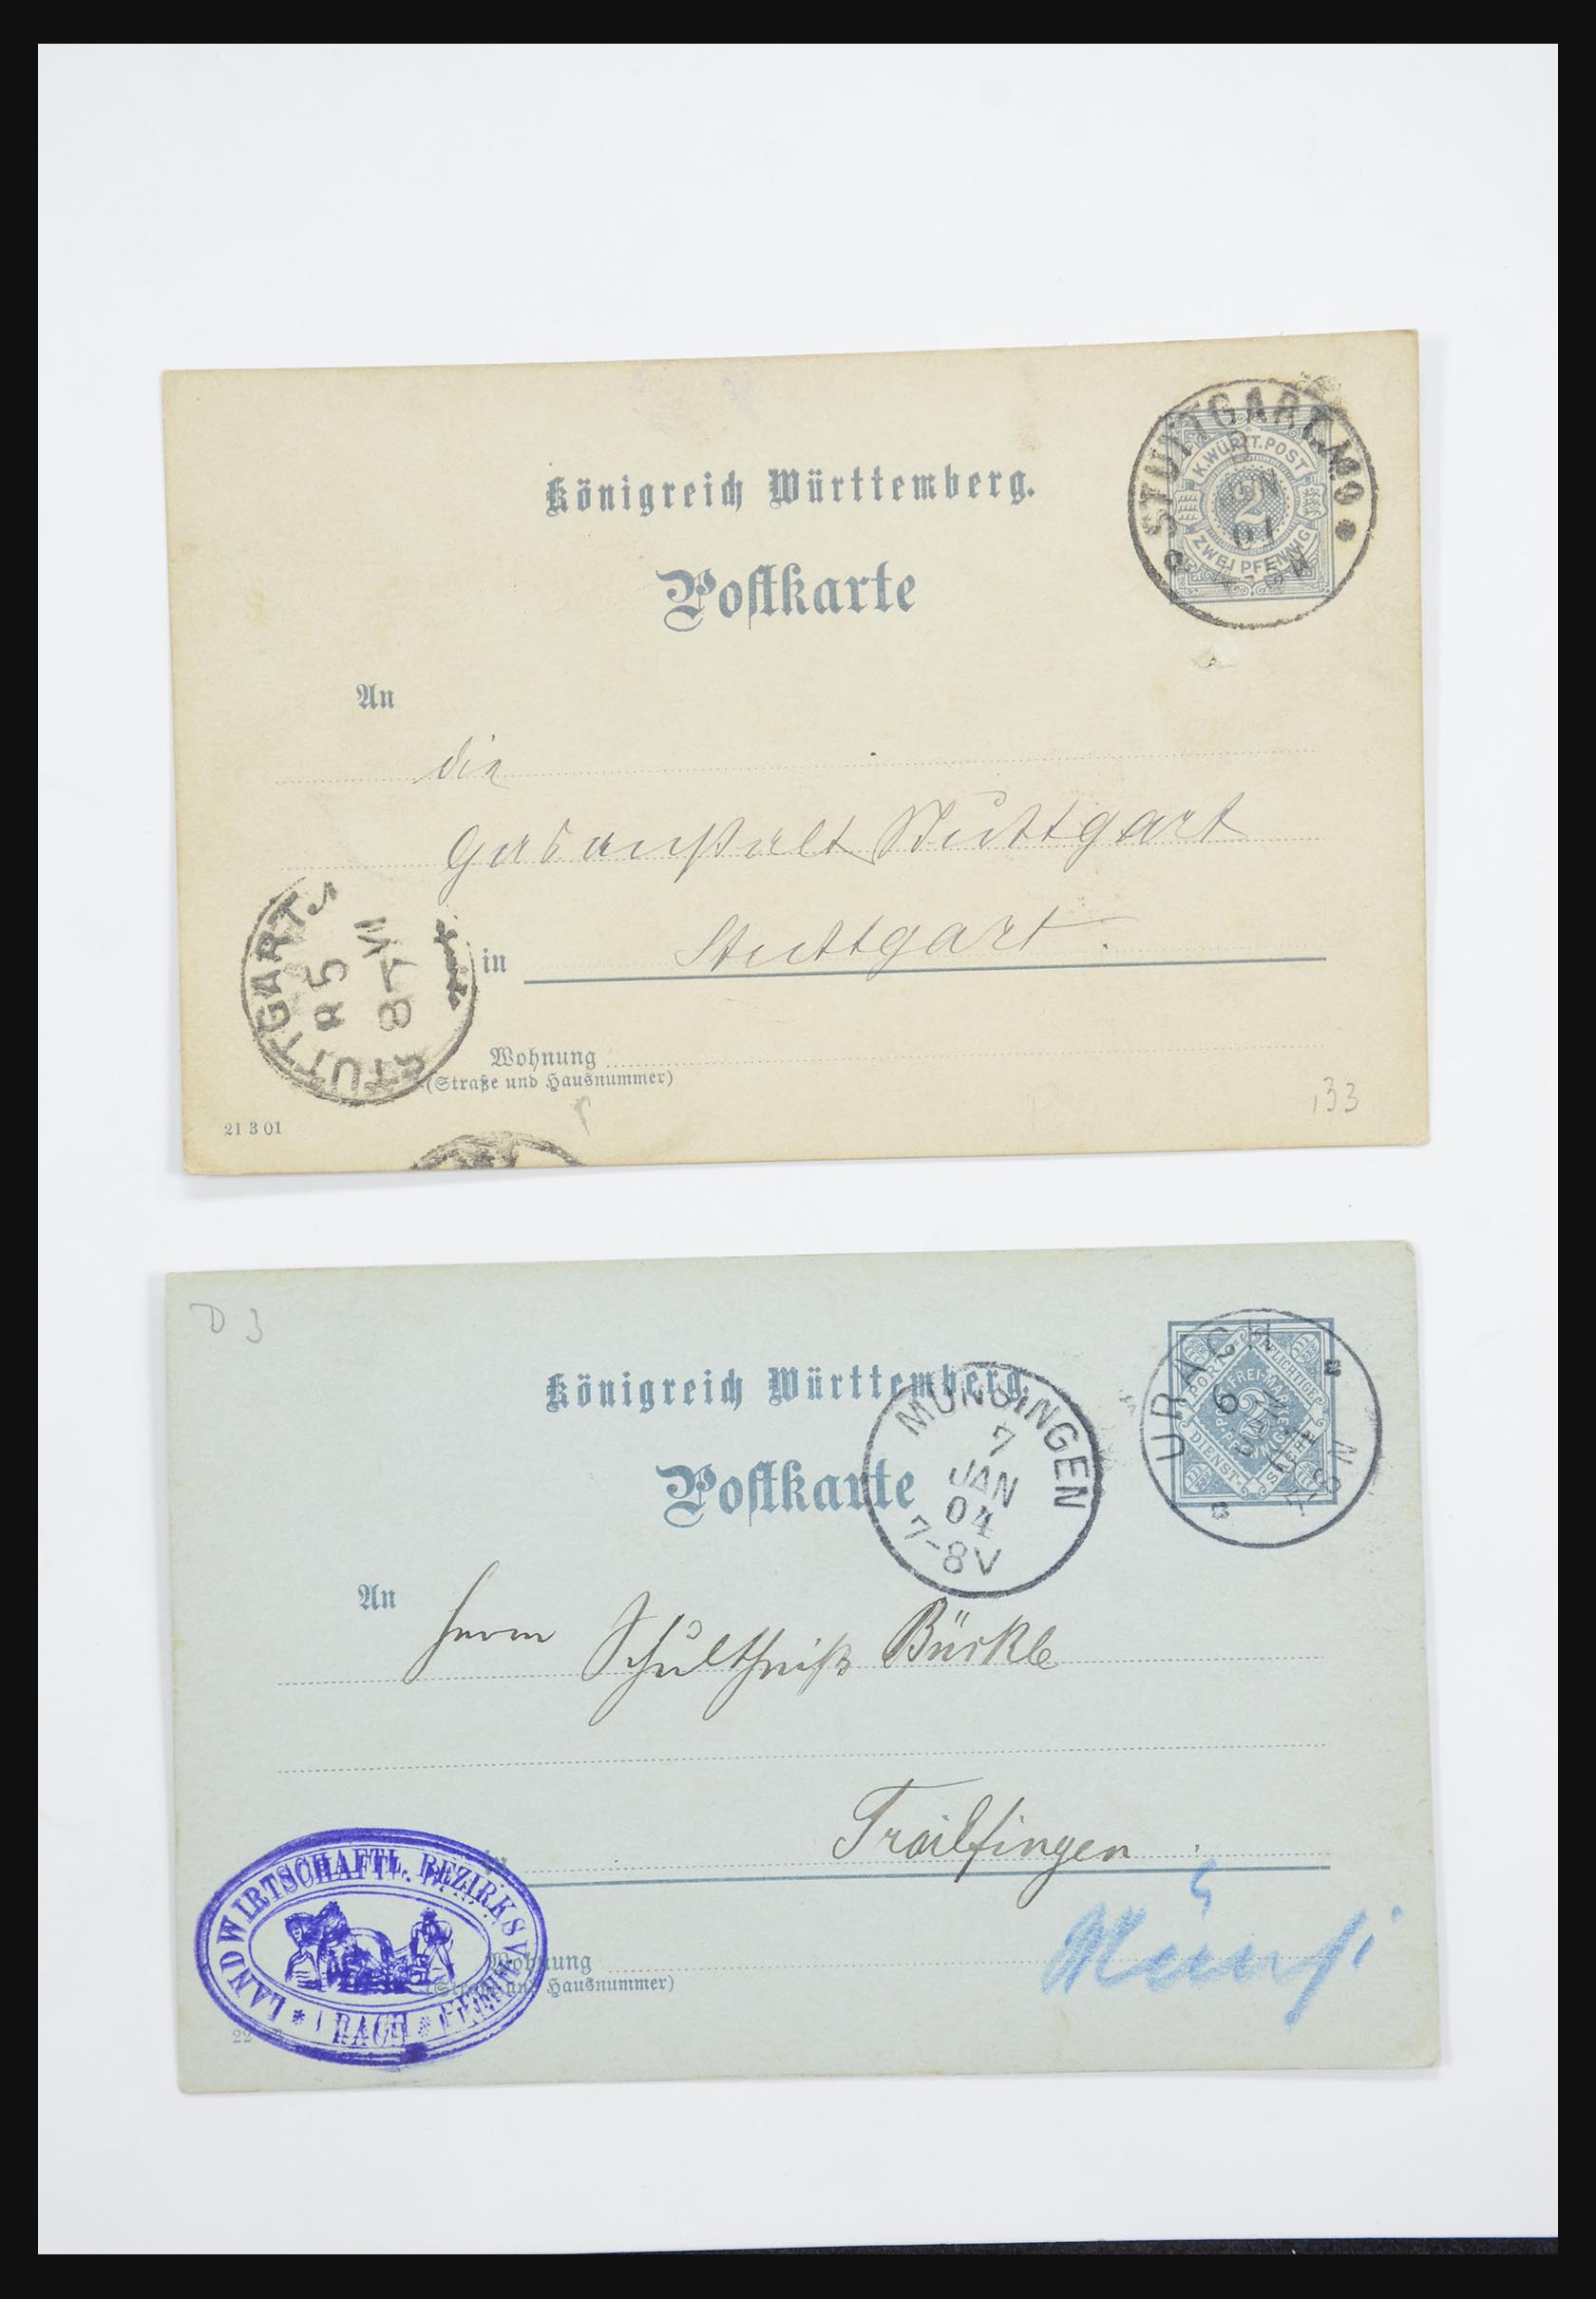 Königreich Württemberg.
Postkarte
STUTTGART.M.9
K.WÜRTT.POST
2
ZWEI PFENNIG
01
An
die
Gasanstalt Stuttgart
in Stuttgart.
STUTTGART
8-9V
Wohnung
(Straße und Hausnummer)
21 3 01
133
D 3
Königreich Württemberg.
Postkarte
MÜNSINGEN
7
JAN
04
7-8V
URACH
6
JAN
04
N
PORTOPFLICHTIGE
DIENSTSACHE
2
An
Herrn Schultheiß Bürkle
Trailfingen
Münsi
LANDWIRTSCHAFTL. BEZIRKSVEREIN
URACH
Wohnung
(Straße und Hausnummer)
22